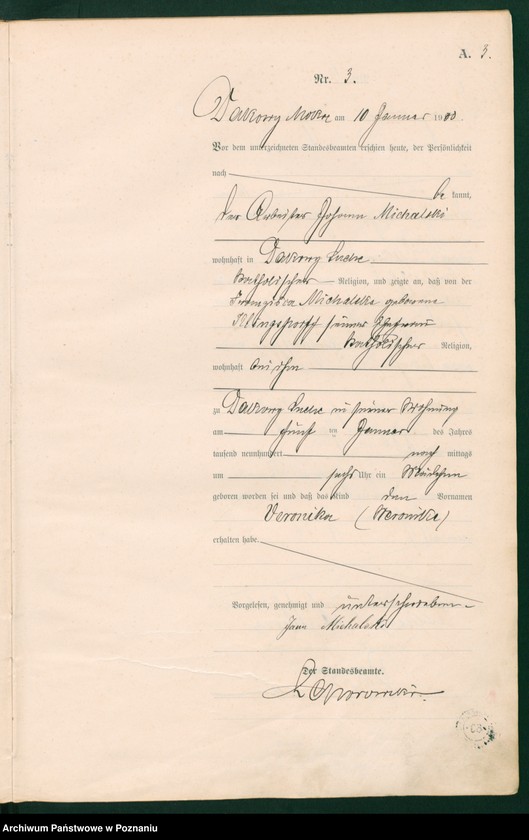 A. 3.
Nr. 3.
Dakowy Mokre am 10 Januar 1900.
Vor dem unterzeichneten Standesbeamten erschien heute, der Persönlichkeit
nach be kannt,
der Arbeiter Johann Michalski
wohnhaft in Dakowy Suche
katholischer Religion, und zeigte an, daß von der
Franziska Michalska geborene
seiner Ehefrau
katholischer Religion,
wohnhaft bei ihm
zu Dakowy Suche in seiner Wohnung
am fünf ten Januar des Jahres
tausend neunhundert nach mittags
um sechs Uhr ein Mädchen
geboren worden sei und daß das Kind den Vornamen
Veronika (Weronika)
erhalten habe.
Vorgelesen, genehmigt und unterschrieben
Jann Michalski
Der Standesbeamte.
Archiwum Państwowe w Poznaniu